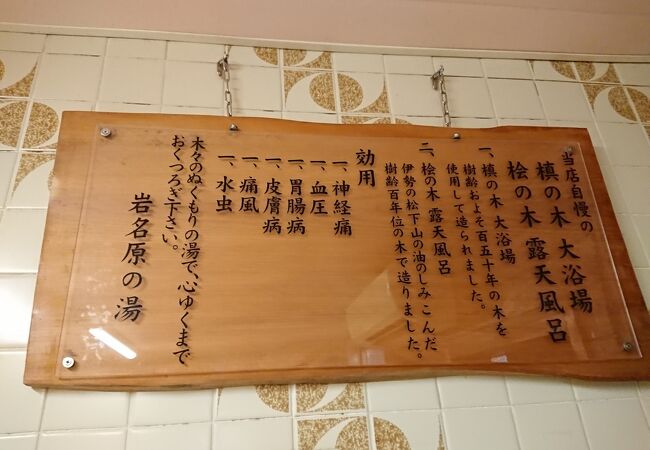 当店自慢の
槙の木 大浴場
桧の木 露天風呂
一、槙の木 大浴場
樹齢およそ百五十年の木を
使用して造られました。
二、桧の木 露天風呂
伊勢の松下山の油のしみこんだ
樹齢百年位の木で造りました。
効用
一、神経痛
一、血圧
一、胃腸病
一、皮膚病
一、痛風
一、水虫
木々のぬくもりの湯で、心ゆくまで
おくつろぎ下さい。
岩名原の湯